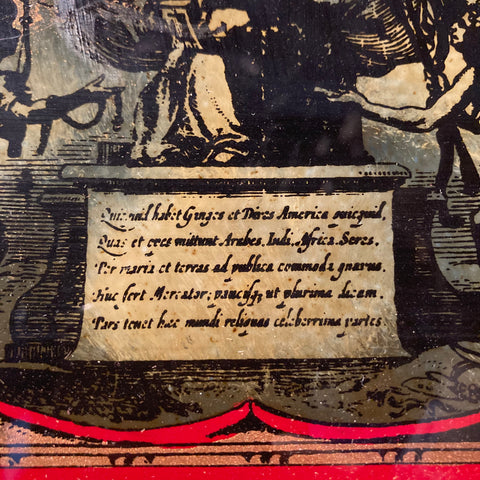 Quicquid habet Ganges et Dives America quicquid,
Quas et opes mittunt Arabes, Indi, Africa, Seres,
Per maria et terras ad publica commoda gnavus,
Huc fert Mercator; paucisq; ut plurima dicam.
Pars tenet haec mundi reliquas celeberrima partes.